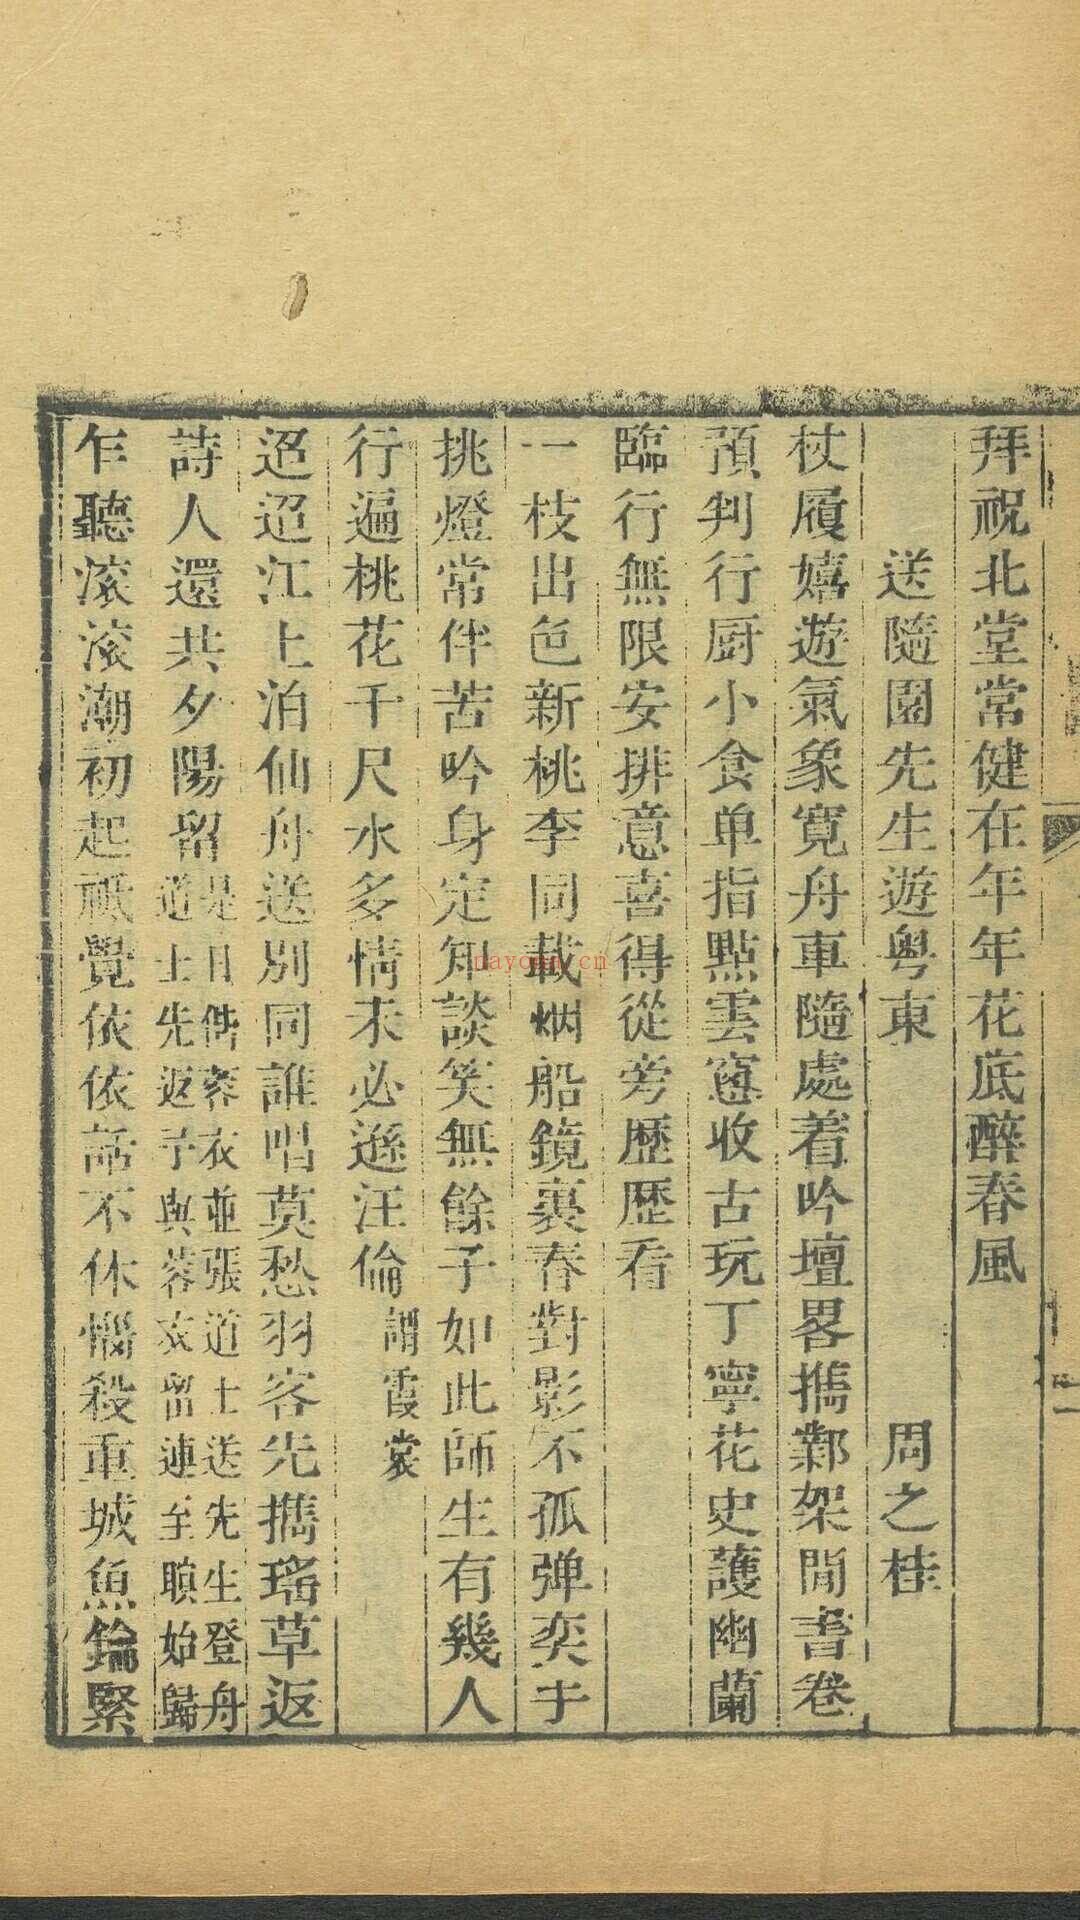 拜祝北堂常健在年年花底醉春風
送隨園先生遊粤東 周之桂
杖履嬉遊氣象寛舟車隨處着吟壇畧攜鄴架閒書卷
預判行厨小食单指點雲窻收古玩丁寧花史護幽蘭
臨行無限安排意喜得從旁歴歴看
一枝出色新桃李同載烟船鏡裏春對影不孤弹奕手
挑燈常伴苦吟身定知談笑無餘子如此師生有幾人
行遍桃花千尺水多情未必遜汪倫謂霞裳
迢迢江上泊仙舟送别同誰唱莫愁羽客先攜瑤草返
詩人還共夕陽留是日偕蓉衣並張道士送先生登舟道士先返予與蓉衣留連至暝始歸
乍聽滚滚潮初起祗覺依依話不休惱殺重城魚鑰緊
nayoan.cn